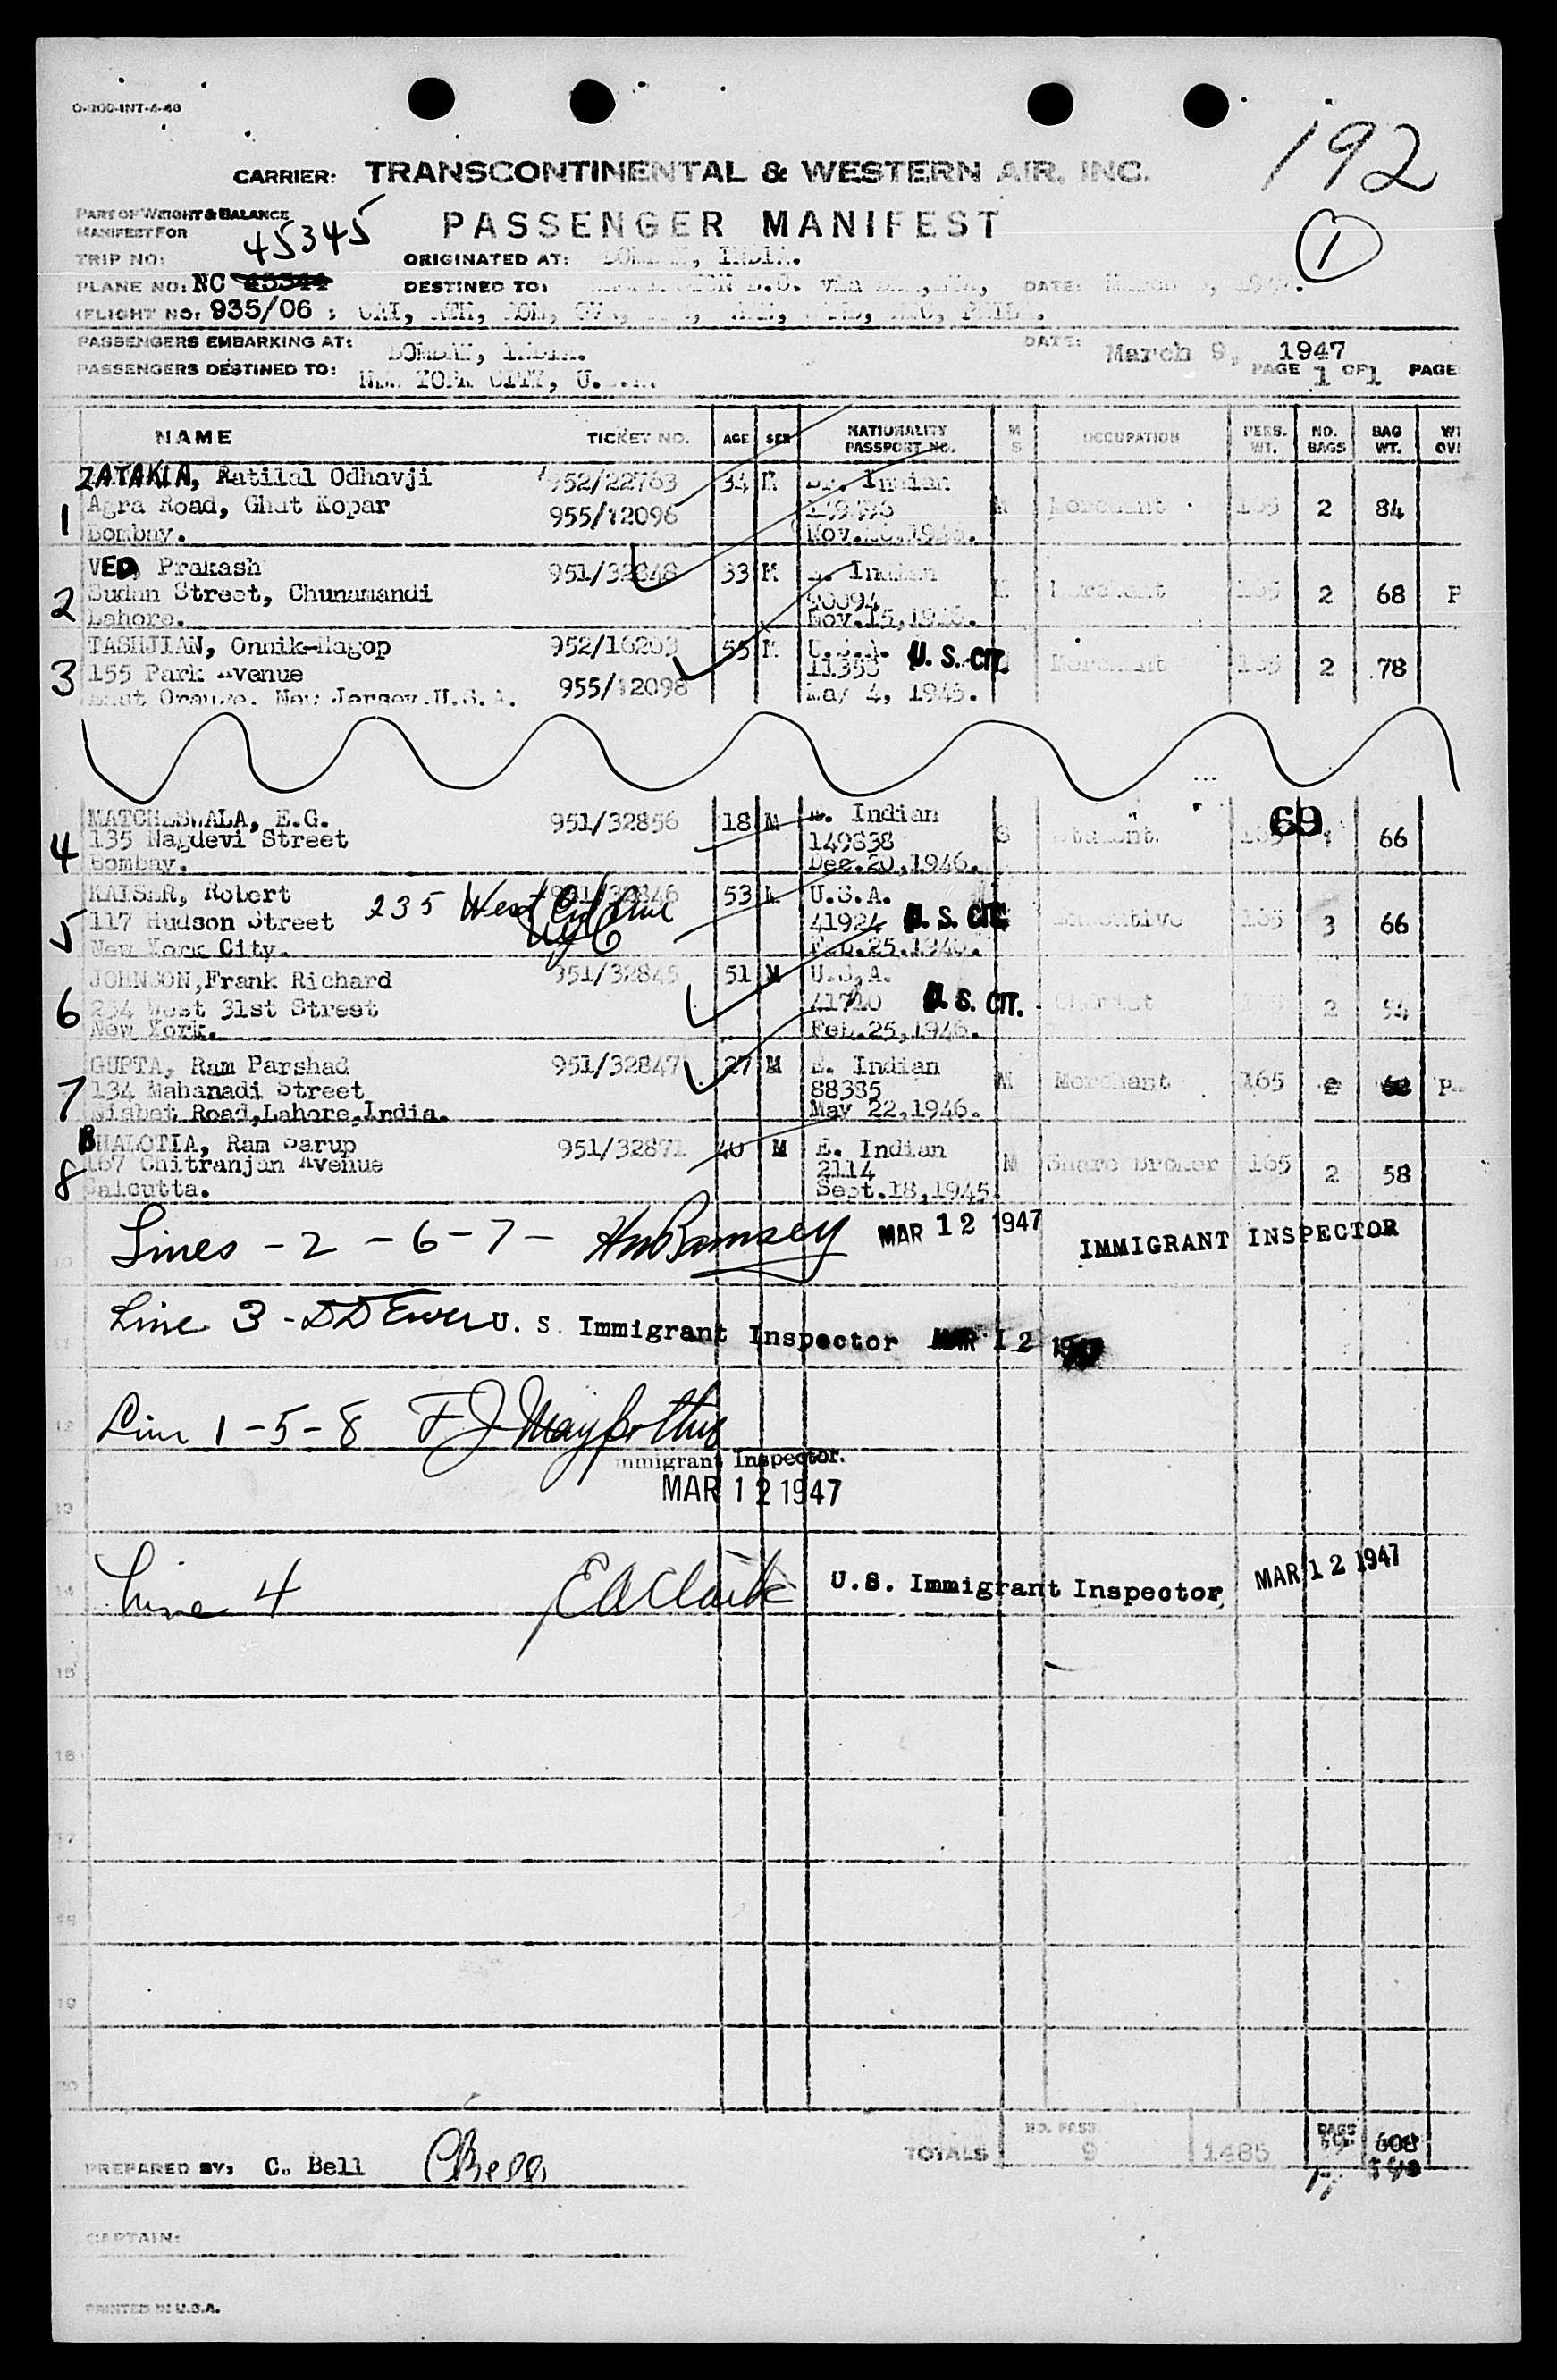 O-200-INT-4-46
192
CARRIER: TRANSCONTINENTAL & WESTERN AIR, INC.
PART OF WEIGHT & BALANCE
MANIFEST FOR
45345
PASSENGER MANIFEST
1
TRIP NO:
ORIGINATED AT: BOMBAY, INDIA.
PLANE NO: NC 45344
DESTINED TO: D.C. via DATE: March 1947.
FLIGHT NO: 935/06 :
PASSENGERS EMBARKING AT: BOMBAY, INDIA.
DATE: March 9, 1947
PASSENGERS DESTINED TO: NEW YORK CITY, U.S.A.
PAGE 1 OF 1 PAGE
NAME TICKET NO. AGE SEX NATIONALITY PASSPORT NO. M S OCCUPATION PERS. WT. NO. BAGS BAG WT.
1 ZATAKIA, Ratilal Odhavji 952/22763 34 M Br. Indian
Agra Road, Ghat Kopar 955/12096 M Merchant 165 2 84
Bombay.
2 VED, Prakash 951/32848 33 M Indian
Sudan Street, Chunamandi M Merchant 165 2 68 P
Lahore. Nov.15,1946.
3 TASHJIAN, Onnik-Hagop 952/16203 55 M U.S.A. U. S. CIT.
155 Park Avenue 955/12098 11358 Merchant 165 2 78
East Orange, New Jersey.U.S.A. May 4, 1946.
69
4 MATCHESWALA, E.G. 951/32856 18 M Indian
135 Nagdevi Street 149838 S Student 165 66
Bombay. Dec.20,1946.
5 KAISER, Robert 951/32846 53 M U.S.A.
117 Hudson Street 235 West End Ave NYC 41924 U. S. CIT. Executive 165 3 66
New York City. Feb.25,1946.
6 JOHNSON,Frank Richard 951/32845 51 M U.S.A.
234 West 31st Street 41710 U. S. CIT. Chemist 165 2 54
New York. Feb.25,1946.
7 GUPTA, Ram Parshad 951/32847 27 M E. Indian
134 Mahanadi Street 88385 M Merchant 165 2 P
Nisbet Road,Lahore,India. May 22,1946.
8 BHALOTIA, Ram Sarup 951/32871 40 M E. Indian
167 Chitranjan Avenue 2114 M Share Broker 165 2 58
Calcutta. Sept.18,1945.
Lines - 2 - 6 - 7 - MAR 12 1947 IMMIGRANT INSPECTOR
10
Line 3 - U. S. Immigrant Inspector MAR 12 1947
11
Line 1 - 5 - 8
12
Immigrant Inspector.
MAR 12 1947
13
Line 4 E A Clark U.S. Immigrant Inspector MAR 12 1947
14
15
16
17
18
19
20
TOTALS NO. PASS. 9 1485 BAGS 608
PREPARED BY: C. Bell C Bell
CAPTAIN:
PRINTED IN U.S.A.